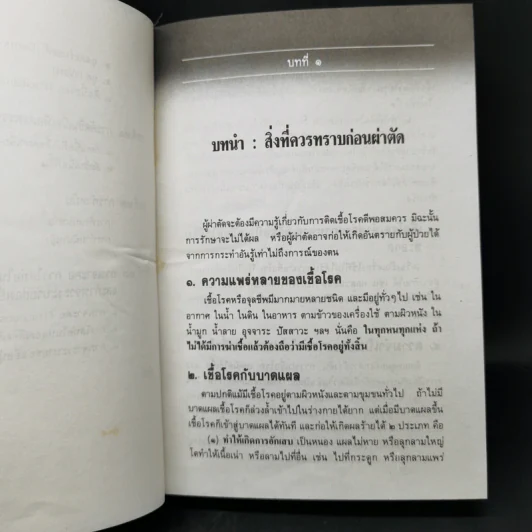 บทที่ ๑
บทนำ : สิ่งที่ควรทราบก่อนผ่าตัด
ผู้ผ่าตัดจะต้องมีความรู้เกี่ยวกับการติดเชื้อโรคดีพอสมควร มิฉะนั้น
การรักษาจะไม่ได้ผล หรือผู้ผ่าตัดอาจก่อให้เกิดอันตรายกับผู้ป่วยได้
จากการกระทำอันรู้เท่าไม่ถึงการณ์ของตน
๑. ความแพร่หลายของเชื้อโรค
เชื้อโรคหรือจุลชีพมีมากมายหลายชนิด และมีอยู่ทั่วๆไป เช่น ใน
อากาศ ในน้ำ ในดิน ในอาหาร ตามข้าวของเครื่องใช้ ตามผิวหนัง ใน
น้ำมูก น้ำลาย อุจจาระ ปัสสาวะ ฯลฯ นั่นคือ ในทุกหนทุกแห่ง ถ้า
ไม่ได้มีการฆ่าเชื้อแล้วต้องถือว่ามีเชื้อโรคอยู่ทั้งสิ้น
๒. เชื้อโรคกับบาดแผล
ตามปกติแม้มีเชื้อโรคอยู่ตามผิวหนังและตามขุมขนทั่วไป ถ้าไม่มี
บาดแผลเชื้อโรคก็ล่วงล้ำเข้าไปในร่างกายได้ยาก แต่เมื่อมีบาดแผลขึ้น
เชื้อโรคก็เข้าสู่บาดแผลได้ทันที และก่อให้เกิดผลร้ายได้ ๒ ประเภท คือ
(๑) ทำให้เกิดการอักเสบ เป็นหนอง แผลไม่หาย หรือลุกลามใหญ่
โตทำให้เนื้อเน่า หรือลามไปที่อื่น เช่น ไปที่กระดูก หรือลุกลามแพร่